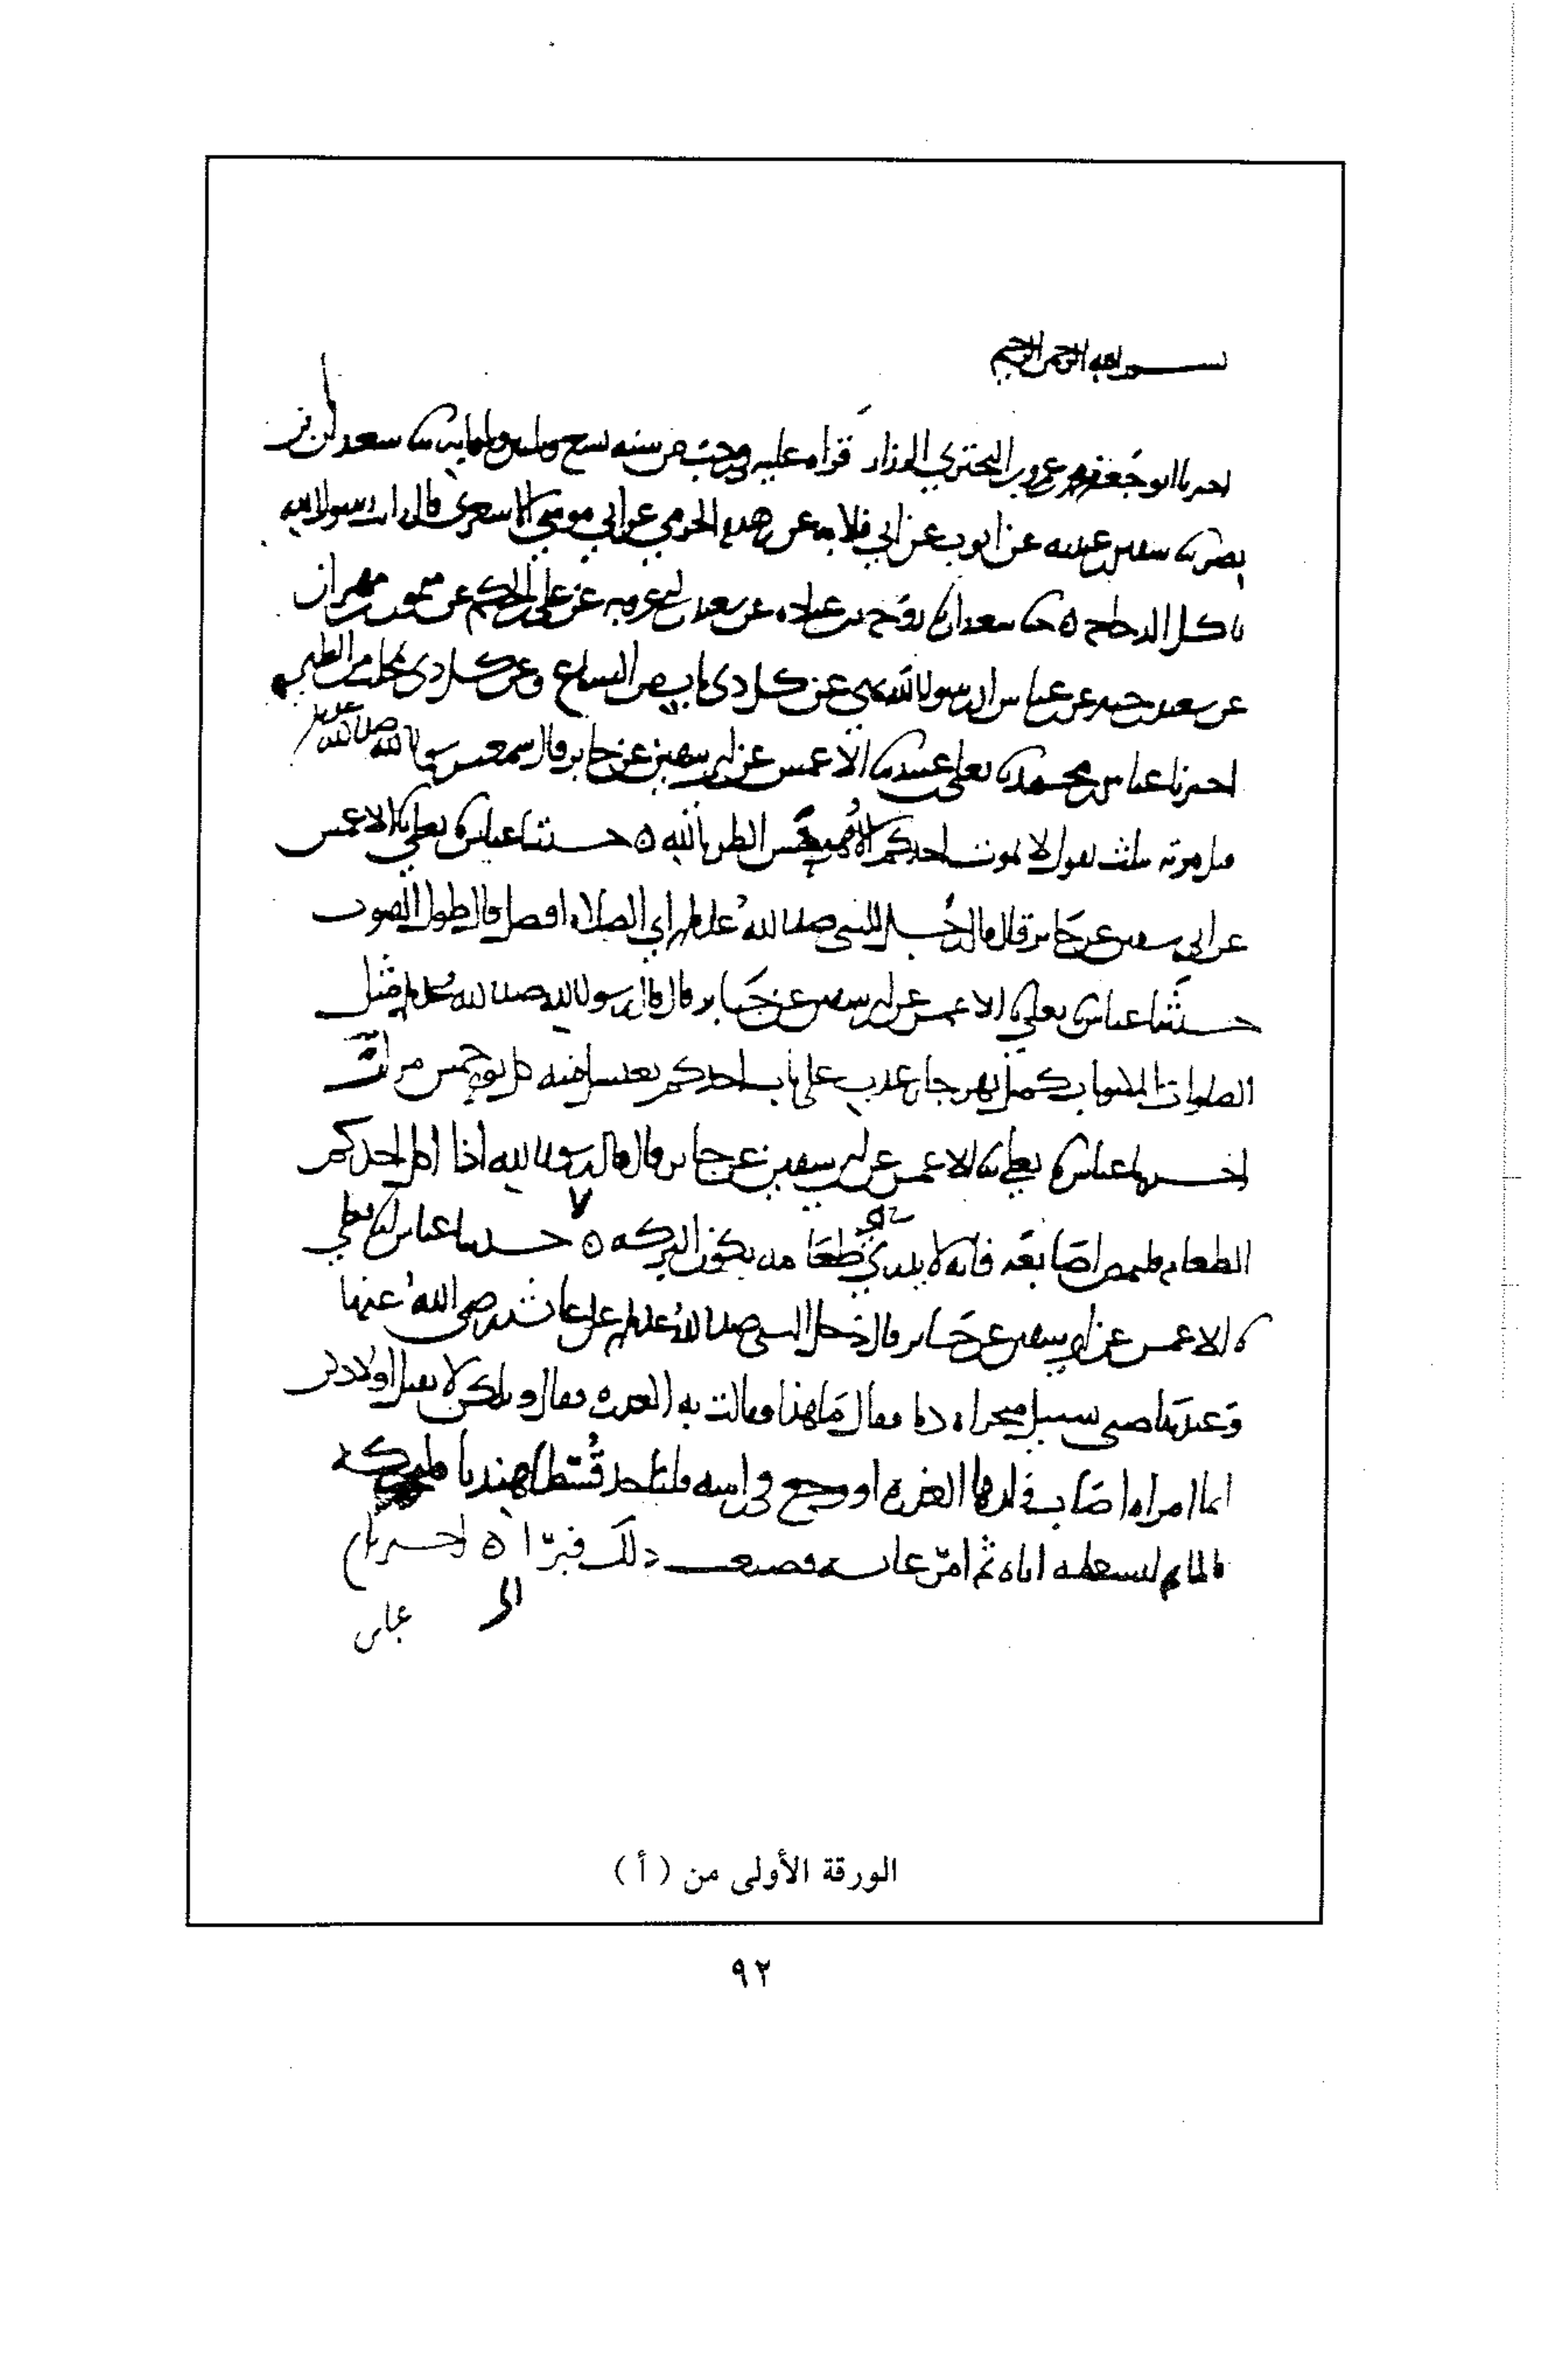 بسم الله الرحمن الرحيم
اخبرنا ابو جعفر محمد بن عمرو بن البختري الرزاز قراه عليه في رجب من سنه تسع وثلثين وثلثمايه ثنا سعدان بن
نصر ثنا سفين بن عيينه عن ايوب عن ابي قلابه عن زهدم الجرمي عن ابي موسى الاشعري قال رايت رسول الله
ياكل الدجاج ه ثنا سعدان ثنا روح بن عباده عن سعيد بن ابي عروبه عن علي بن الحكم عن ميمون بن مهران
عن سعيد بن جبير عن ابن عباس ان رسول الله نهى عن كل ذي ناب من السباع وعن كل ذي مخلب من الطير
اخبرنا عباس بن محمد ثنا يعلى بن عبيد ثنا الاعمش عن ابي سفين عن جابر قال سمعت رسول الله صلى الله عليه
قبل موته بثلث يقول لا يموتن احدكم الا وهو يحسن الظن بالله ه حدثنا عباس ثنا يعلى ثنا الاعمش
عن ابي سفين عن جابر قال قال رجل للنبي صلى الله عليه وسلم اي الصلاه افضل قال طول القنوت
حدثنا عباس ثنا يعلى ثنا الاعمش عن ابي سفين عن جابر قال قال رسول الله صلى الله عليه وسلم مثل
الصلوات المكتوبات كمثل نهر جار عذب على باب احدكم يغتسل منه كل يوم خمس مرات
اخبرنا عباس ثنا يعلى ثنا الاعمش عن ابي سفين عن جابر قال قال رسول الله اذا اكل احدكم
الطعام فليمص اصابعه فانه لا يدري في اي طعامه يكون البركه ه حدثنا عباس ثنا يعلى
ثنا الاعمش عن ابي سفين عن جابر قال دخل النبي صلى الله عليه وسلم على عائشه رضي الله عنها
وعندها صبي يسيل منخراه دما فقال ما هذا فقالت به العذره فقال ويلكن لا تقتلن اولادكن
ايما امراه اصاب ولدها العذره او وجع في راسه فلتاخذ قسطا هنديا فلتحكه
بالماء ثم لتسعطه اياه ثم امر عائشه فصنعت ذلك فبرا ه اخبرنا
عباس
الورقة الأولى من (أ)
٩٢